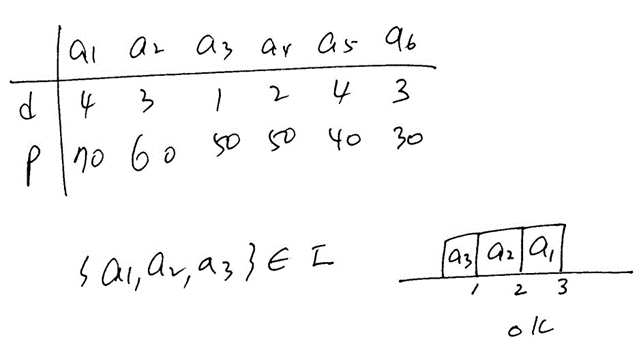 a1 a2 a3 a4 a5 a6
d 4 3 1 2 4 3
P 70 60 50 50 40 30
{a1, a2, a3} ∈ I
a3 a2 a1
1 2 3
ok